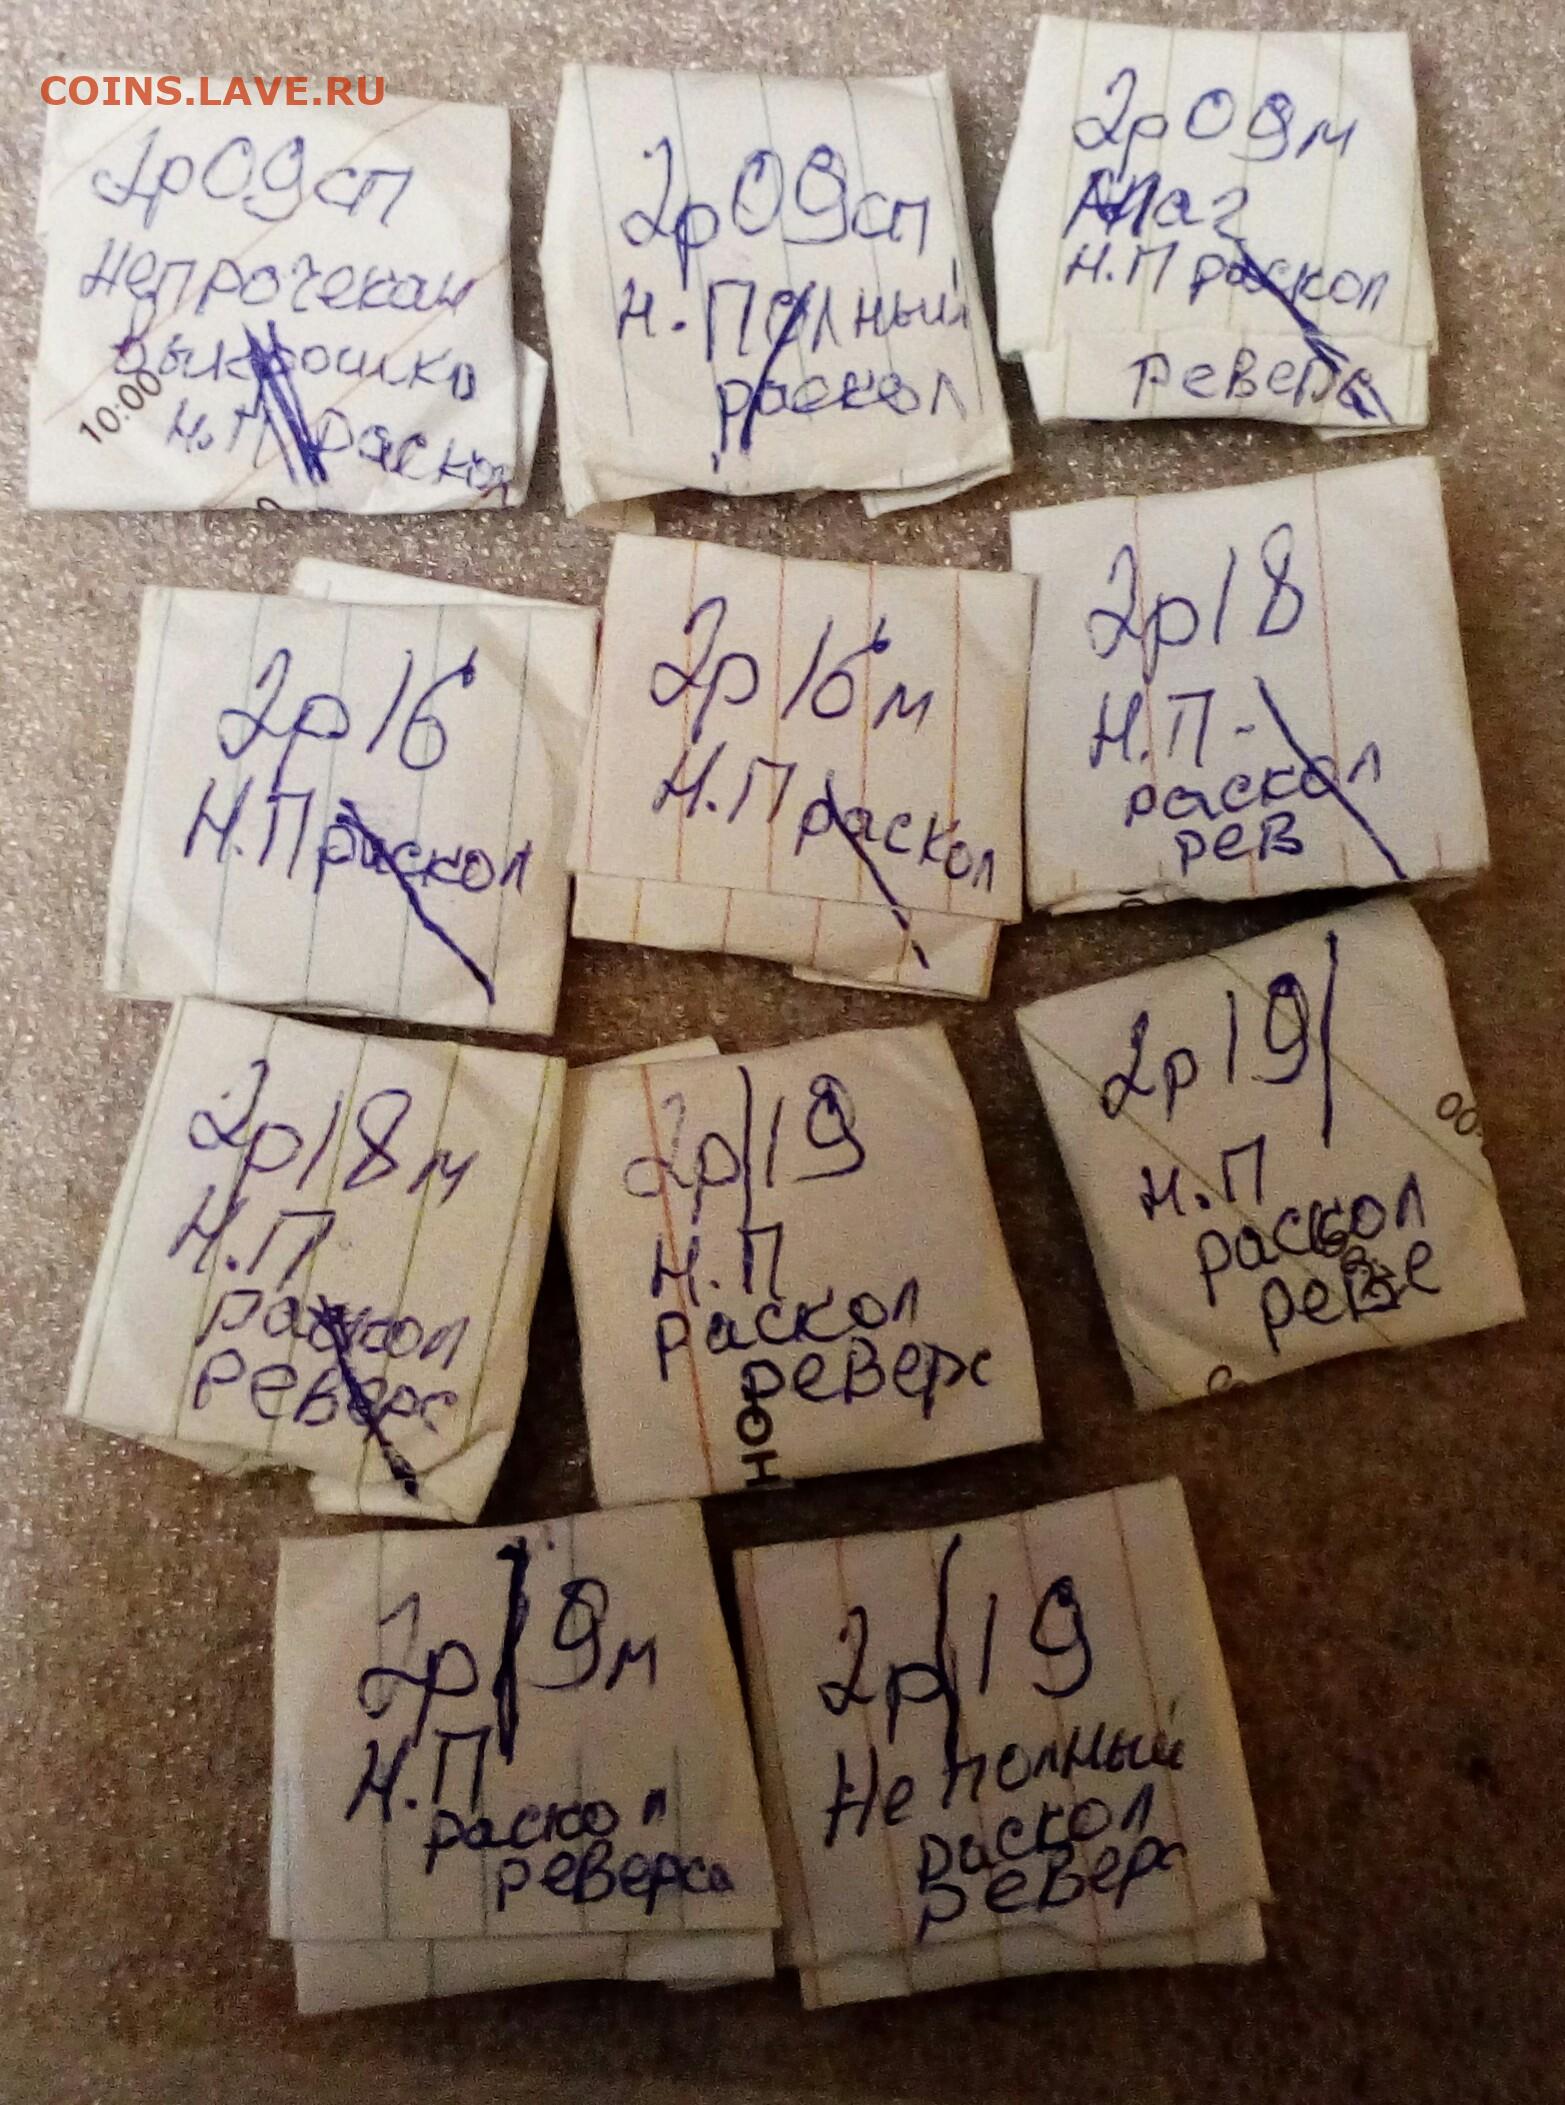 COINS.LAVE.RU
2р09сп
непрочекан
выкрошка
н.П раскол
10:00
2р09сп
н.Полный
раскол
2р09м
Маг
н.П раскол
реверс
2р16
Н.П раскол
2р16м
Н.П раскол
2р18
Н.П-
раскол
рев
2р18м
Н.П.
раскол
реверс
2р19
Н.П
раскол
реверс
ЮН
2р19
Н.П
раскол
00
2р19м
Н.П
раскол
реверса
2р19
Не полный
раскол
реверс